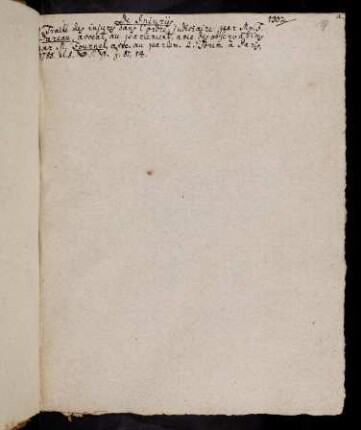 De Injuriis 1302
Traité des injures dans l'ordre judiciaire, par M. F.
Dareau, avocat au parlement, avec des observations
par M. Fournel, avoc. au parlem. 2. Tom. à Paris,
1785. 8.